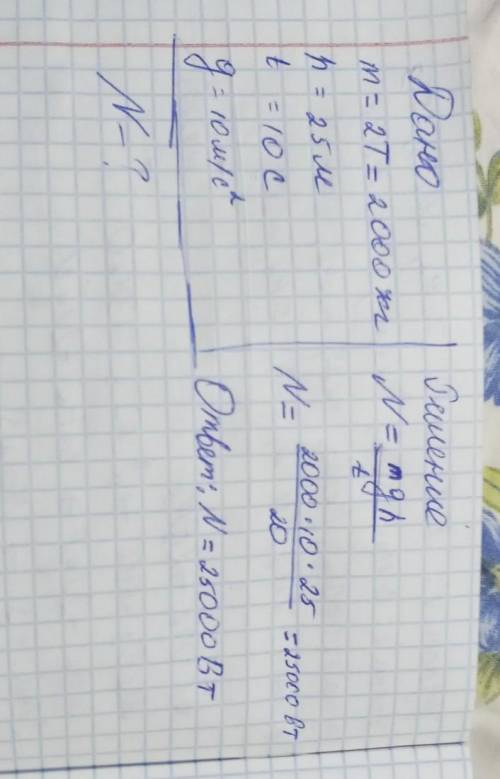 Дано
m = 2Т = 2000 кг
h = 25 м
t = 10 с
g = 10 м/с²
N - ?
Решение
N = mgh / t
N = 2000 · 10 · 25 / 20 = 25000 Вт
Ответ: N = 25000 Вт